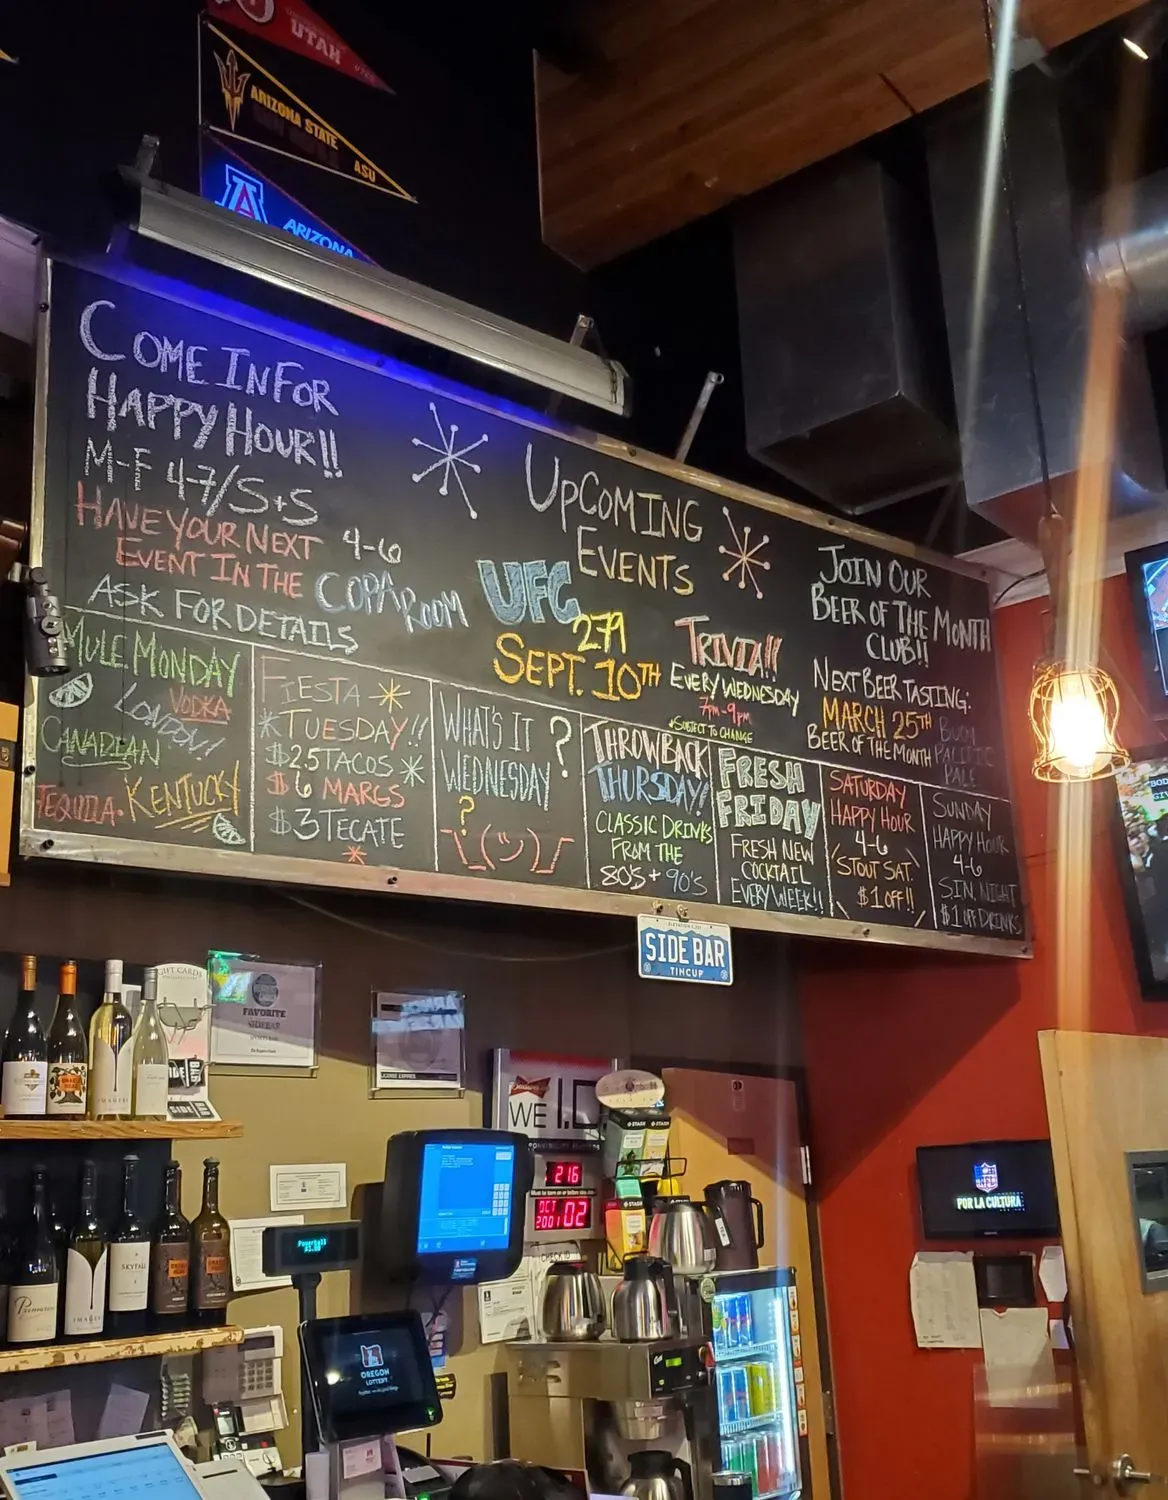 UTAH
ARIZONA STATE
ASU
A
ARIZONA
COME IN FOR
HAPPY HOUR!!
M-F 4-7/S+S
4-6
HAVE YOUR NEXT
EVENT IN THE
COPA ROOM
ASK FOR DETAILS
UPCOMING
EVENTS
UFC
279
SEPT. 10TH
TRIVIA!!
EVERY WEDNESDAY
7PM-9PM
*SUBJECT TO CHANGE
JOIN OUR
BEER OF THE MONTH
CLUB!!
NEXT BEER TASTING:
MARCH 25TH
BEER OF THE MONTH
BUOY
PACIFIC
PALE
MULE MONDAY
VODKA
LONDON!
CANADIAN
TEQUILA · KENTUCKY
FIESTA
TUESDAY!!
$2.5 TACOS
$6 MARGS
$3 TECATE
WHAT'S IT
WEDNESDAY
?
?
¯\_(ツ)_/¯
THROWBACK
THURSDAY!
CLASSIC DRINKS
FROM THE
80'S + 90'S
FRESH
FRIDAY
FRESH NEW
COCKTAIL
EVERY WEEK!!
SATURDAY
HAPPY HOUR
4-6
STOUT SAT.
$1 OFF!!
SUNDAY
HAPPY HOUR
4-6
S.I.N. NIGHT
$1 OFF DRINKS
SIDE BAR
TINCUP
GIFT CARDS
FAVORITE
SIDEBAR
LICENSE EXPIRES
Budweiser
WE I.D.
216
OCT
2001 02
CHECK ID
STASH
STASH
STASH
NFL
POR LA CULTURA
Powerball
OREGON
LOTTERY
SKYFALL
SIDE